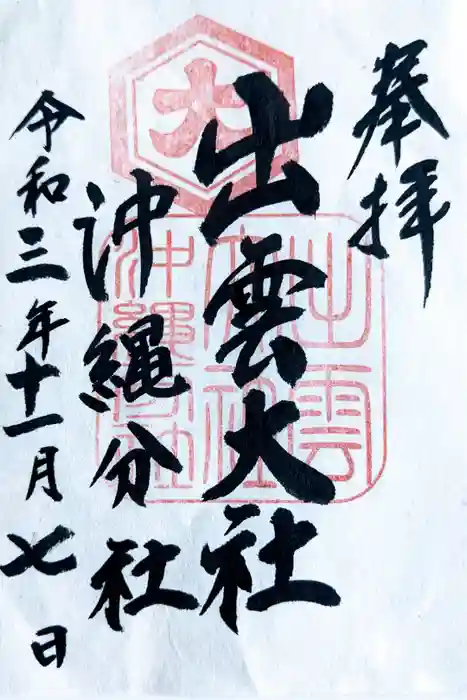 奉拝
出雲大社
沖縄分社
令和三年十一月七日
大
出雲
大社
沖縄分社